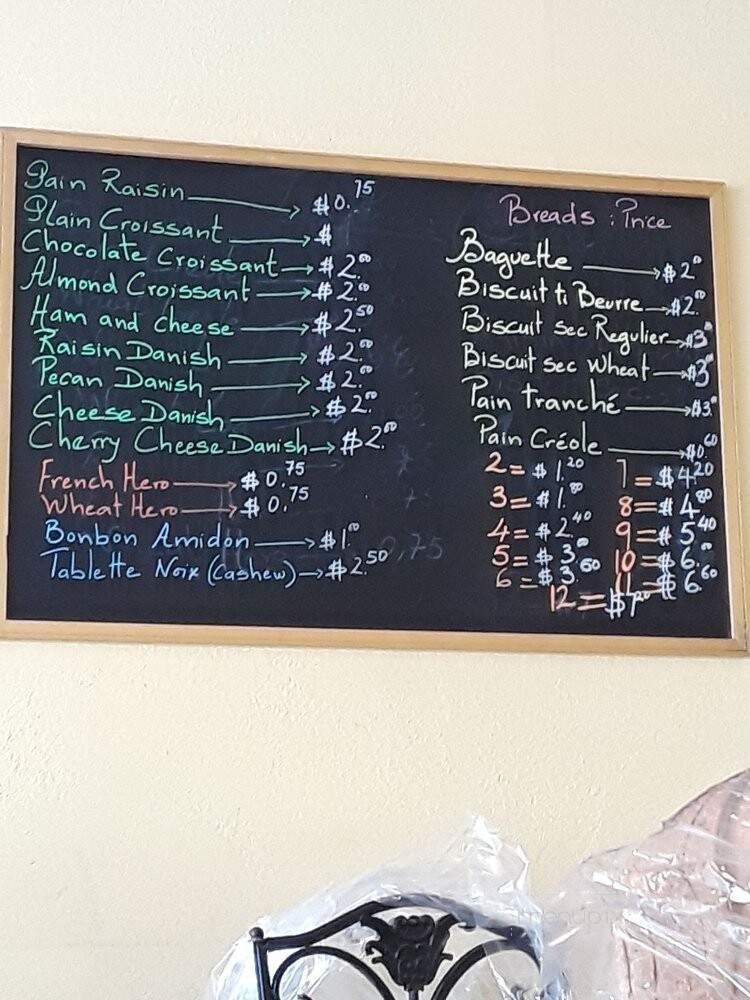 Pain Raisin $0.75
Plain Croissant $
Chocolate Croissant $2.00
Almond Croissant $2.00
Ham and cheese $2.50
Raisin Danish $2.00
Pecan Danish $2.00
Cheese Danish $2.00
Cherry Cheese Danish $2.00
French Hero $0.75
Wheat Hero $0.75
Bonbon Amidon $1.00
Tablette Noix (Cashew) $2.50
Breads : Price
Baguette $2.0
Biscuit ti Beurre $2.00
Biscuit sec Regulier $3.0
Biscuit sec Wheat $3.0
Pain tranché $3.0
Pain Créole $0.60
2 = $1.20 7 = $4.20
3 = $1.80 8 = $4.80
4 = $2.40 9 = $5.40
5 = $3.00 10 = $6.00
6 = $3.60 11 = $6.60
12 = $7.20